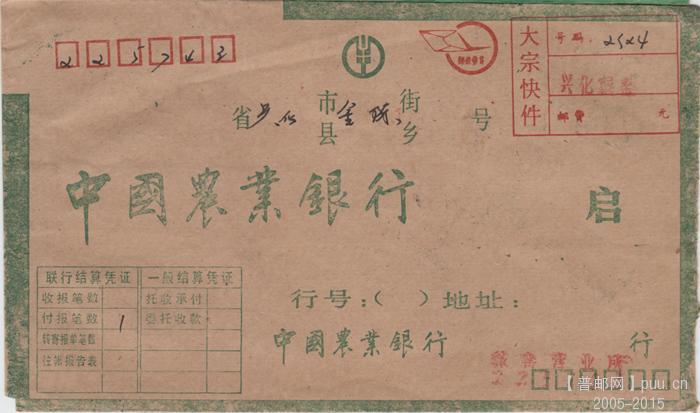 225743
大宗快件
号码: 2524
兴化
邮费 元
省 兴化 市县 金 街乡 号
中國農業銀行 启
联行结算凭证 一般结算凭证
收报笔数 托收承付
付报笔数 1 委托收款
转寄报单笔数
往帐报告表
行号:( )地址:
中國農業銀行 行
营业所
【普邮网】puu.cn
2005-2015